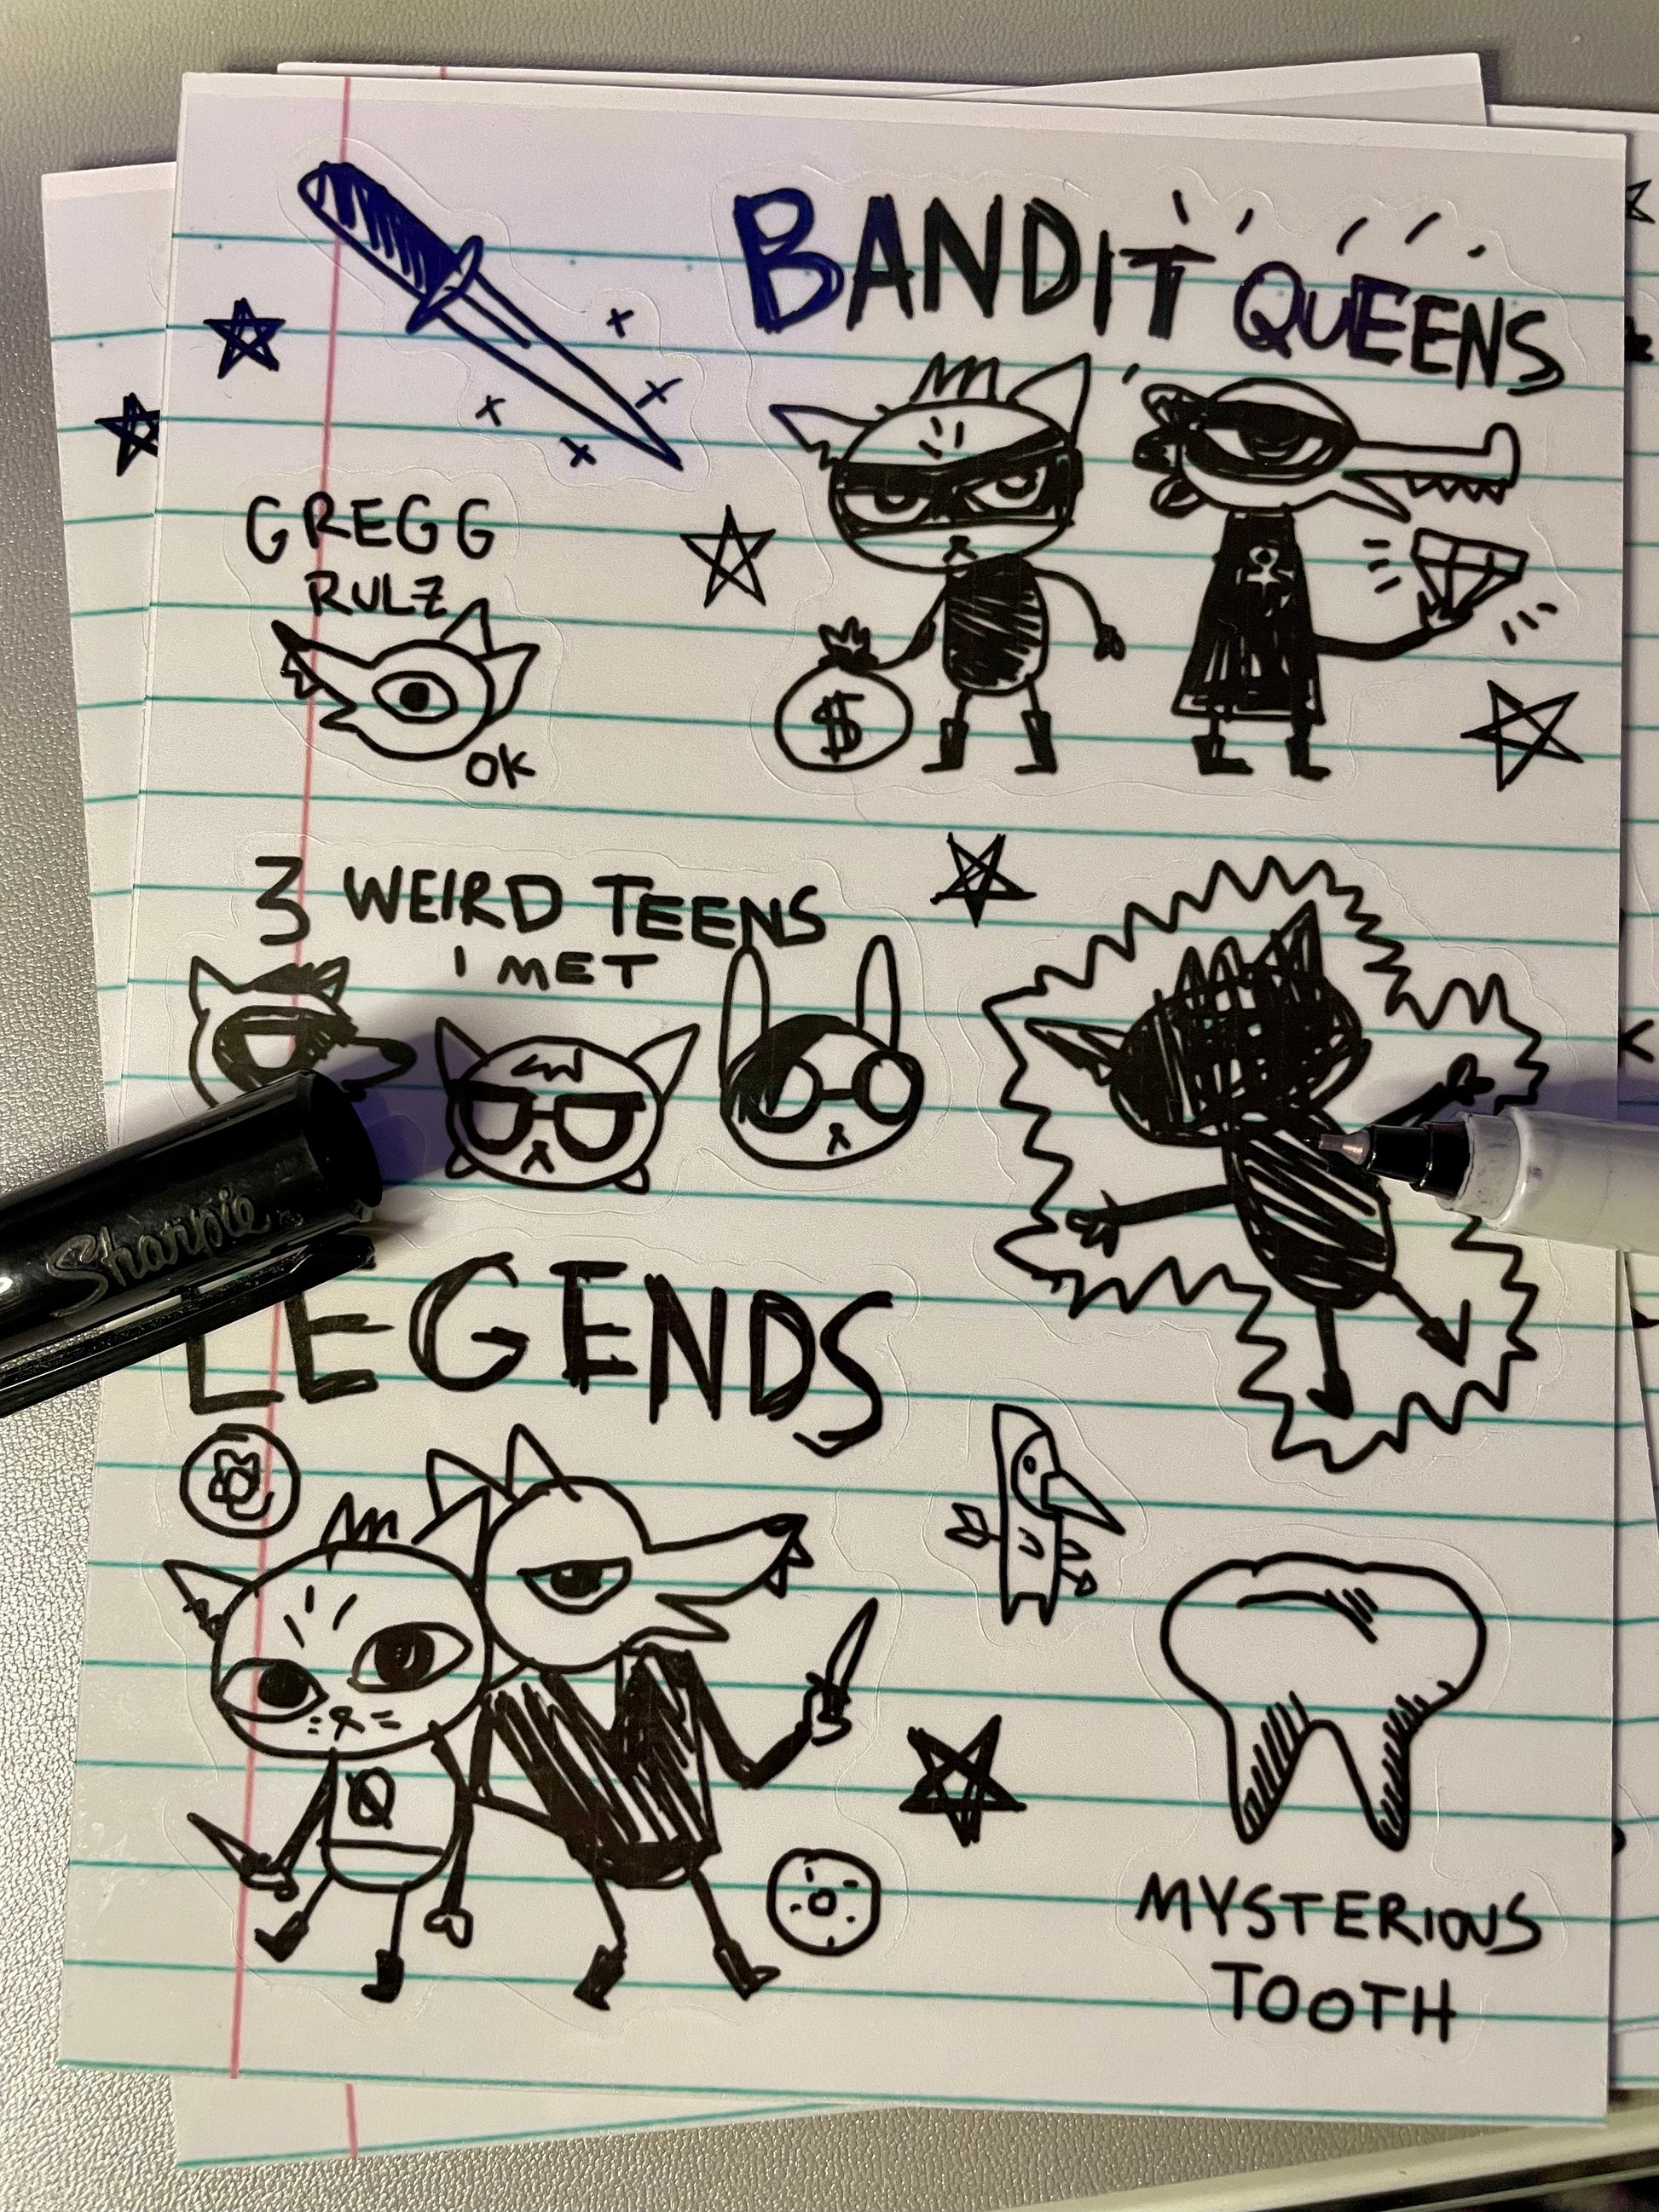 BANDIT QUEENS
GREGG
RULZ
OK
$
3 WEIRD TEENS
I MET
Sharpie
LEGENDS
MYSTERIOUS
TOOTH